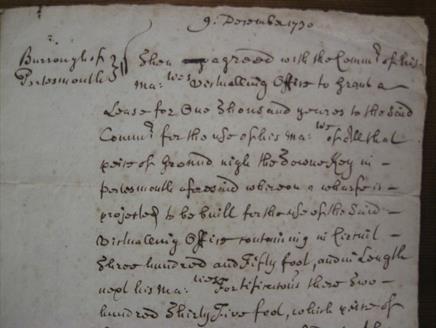 9. December 1730
Burrough of } Then agreed with the Comm.rs of his
Portesmouth } Ma:ties Victualling Office to Grant a
Lease for One Thousand yeares to the Said
Comm.rs for the use of his Ma:tie of all that
peice of Ground nigh the Towne Key in
portesmouth aforesaid whereon a wharfe is
projected to be built for the use of the Said
Victualling Office containing in Circuit
Three hundred and Fifty foot, and in Length
next his Ma:ties Fortifications there Two
hundred Thirty Five foot, which peice of